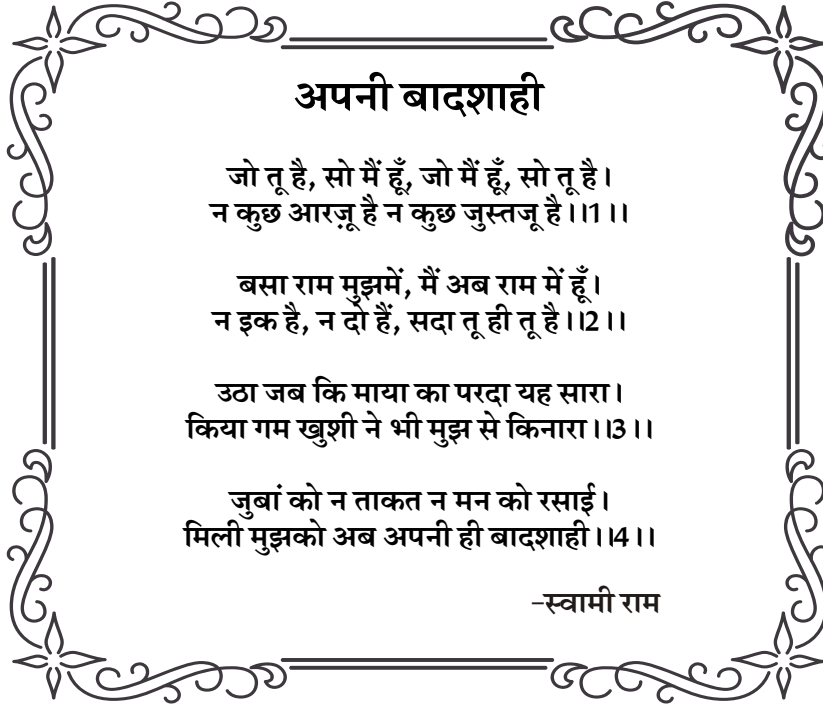 अपनी बादशाही
जो तू है, सो मैं हूँ, जो मैं हूँ, सो तू है।
न कुछ आरज़ू है न कुछ जुस्तजू है।।1।।
बसा राम मुझमें, मैं अब राम में हूँ।
न इक है, न दो हैं, सदा तू ही तू है।।2।।
उठा जब कि माया का परदा यह सारा।
किया गम खुशी ने भी मुझ से किनारा।।3।।
जुबां को न ताकत न मन को रसाई।
मिली मुझको अब अपनी ही बादशाही।।4।।
-स्वामी राम